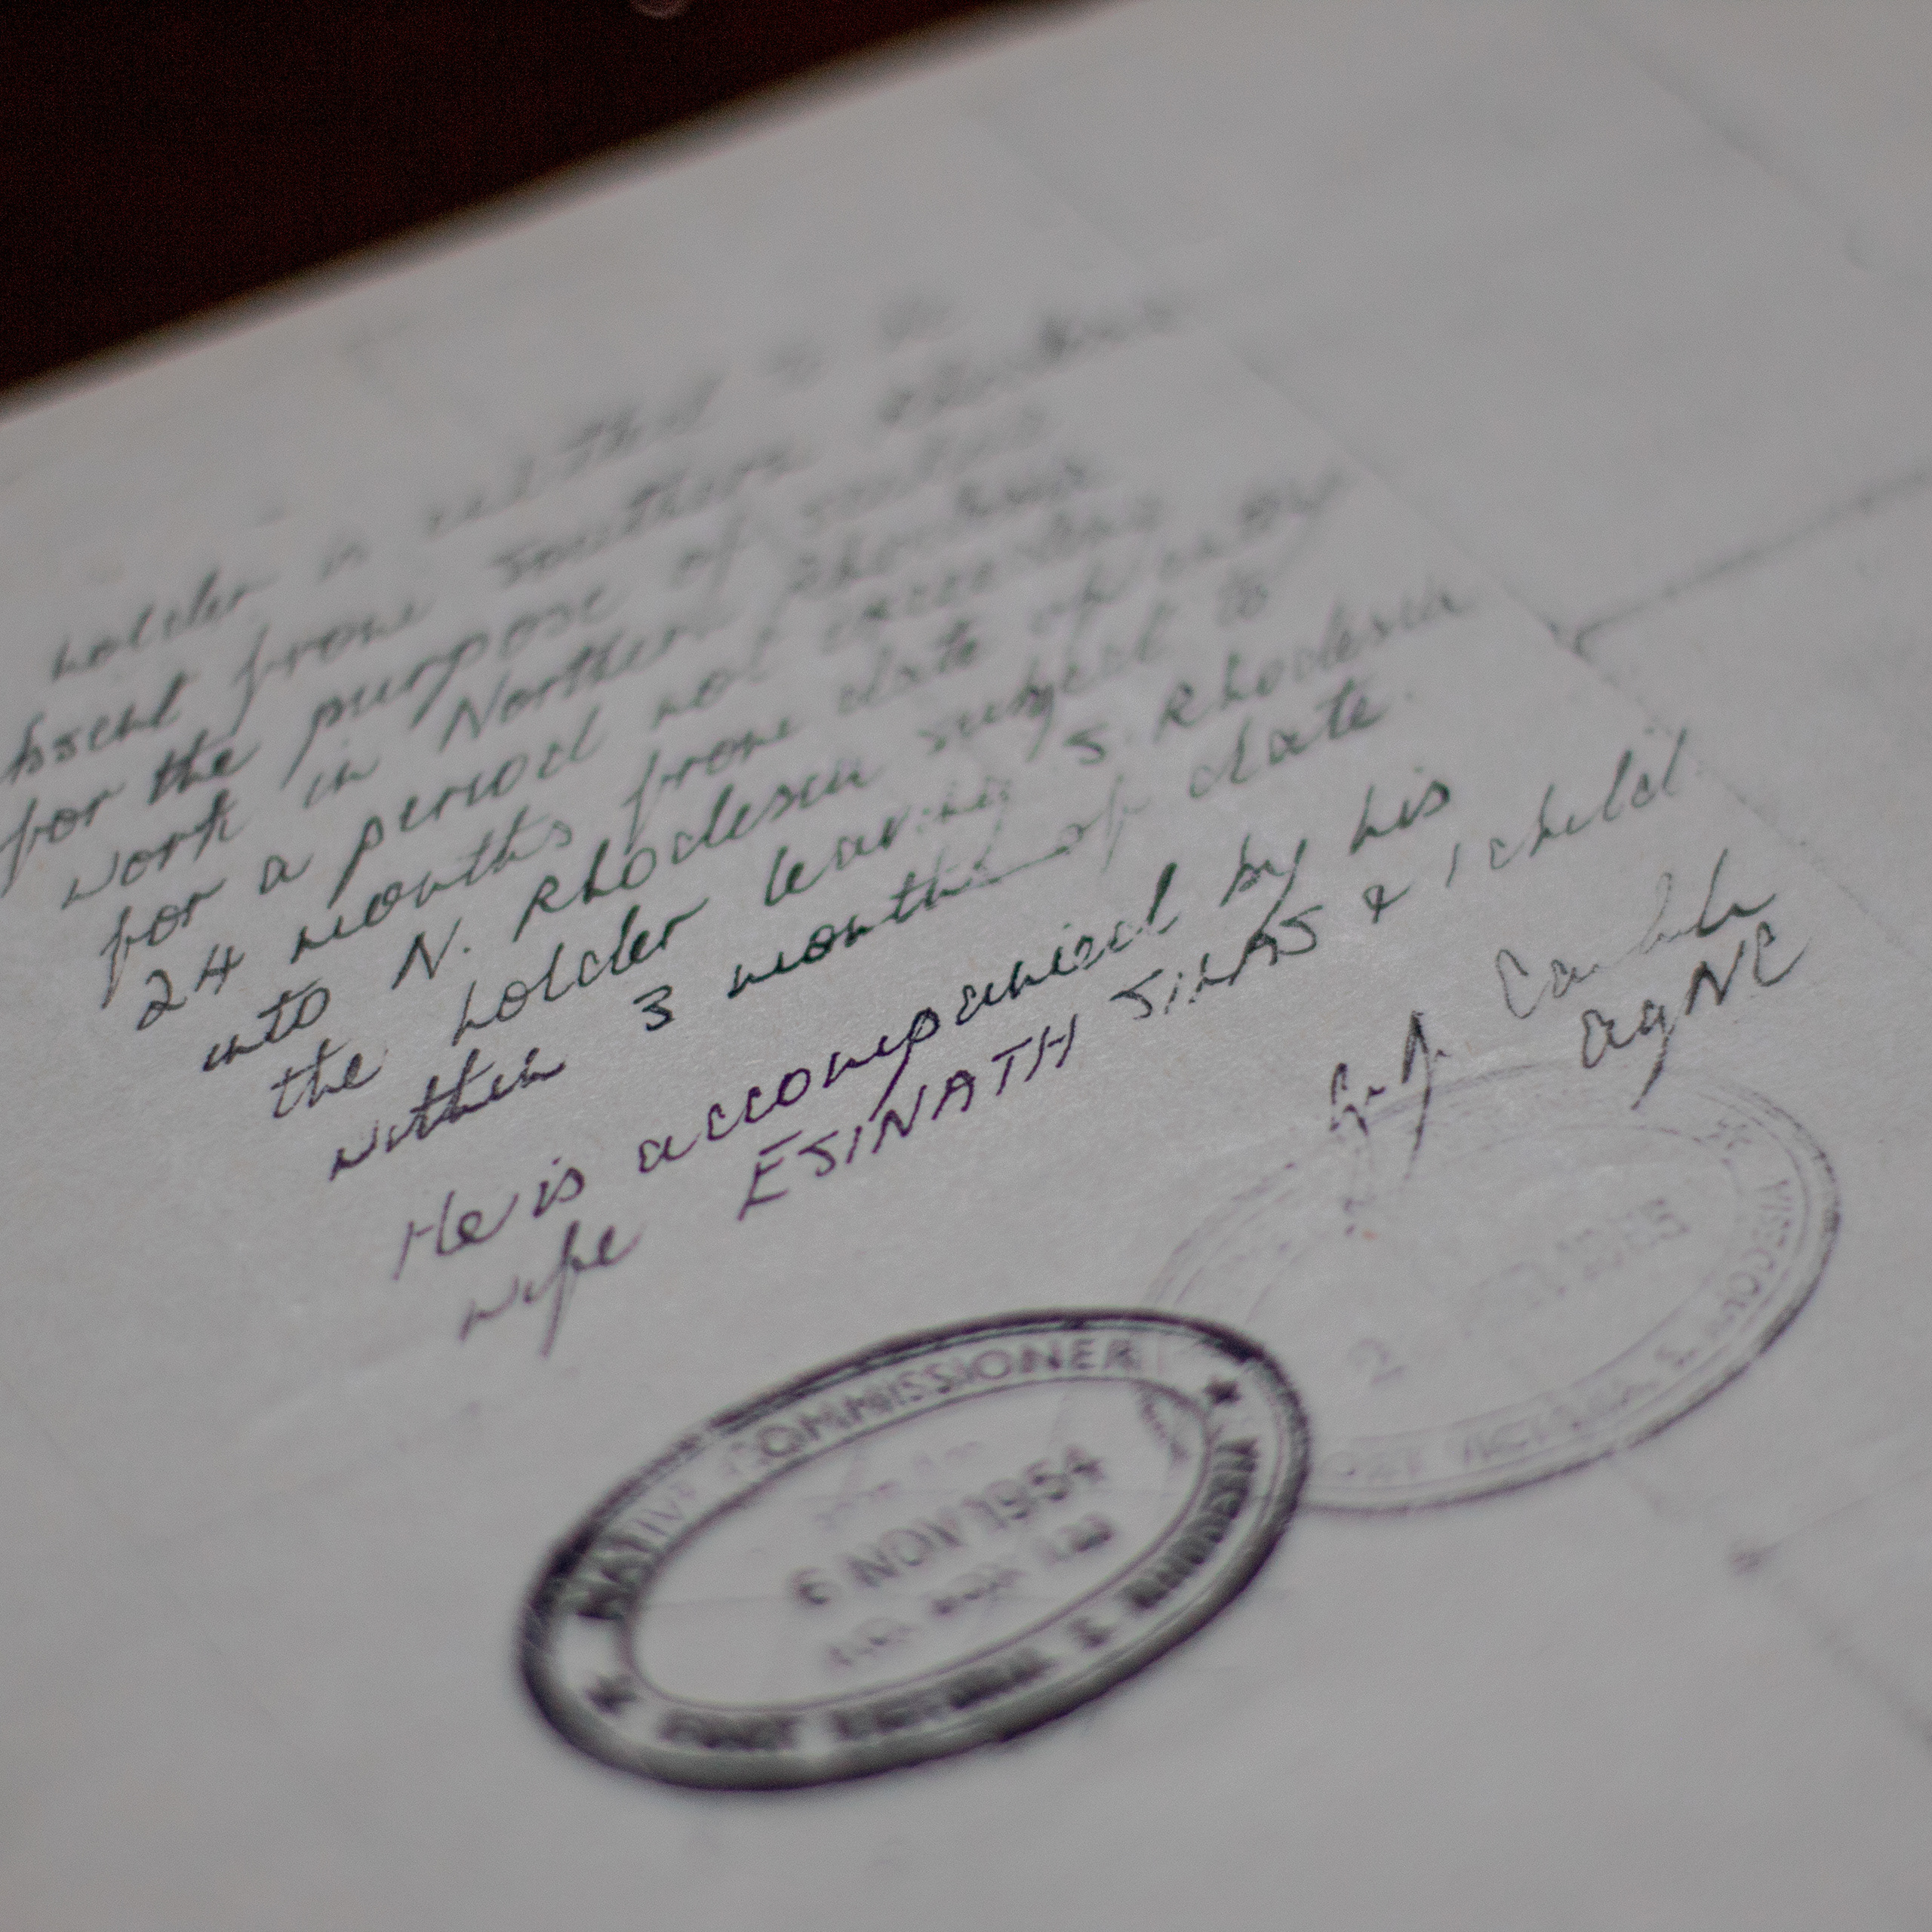 holder is that to be
absent from Southern Rhodesia
for the purpose of
work in Northern Rhodesia
for a period not exceeding
24 months from date of entry
into N. Rhodesia subject to
the holder leaving S. Rhodesia
within 3 months of date.
He is accompanied by his
wife ESINATH & 1 child
agNC
NATIVE COMMISSIONER
6 NOV 1954
FORT VICTORIA S. RHODESIA
2
FORT VICTORIA S. RHODESIA